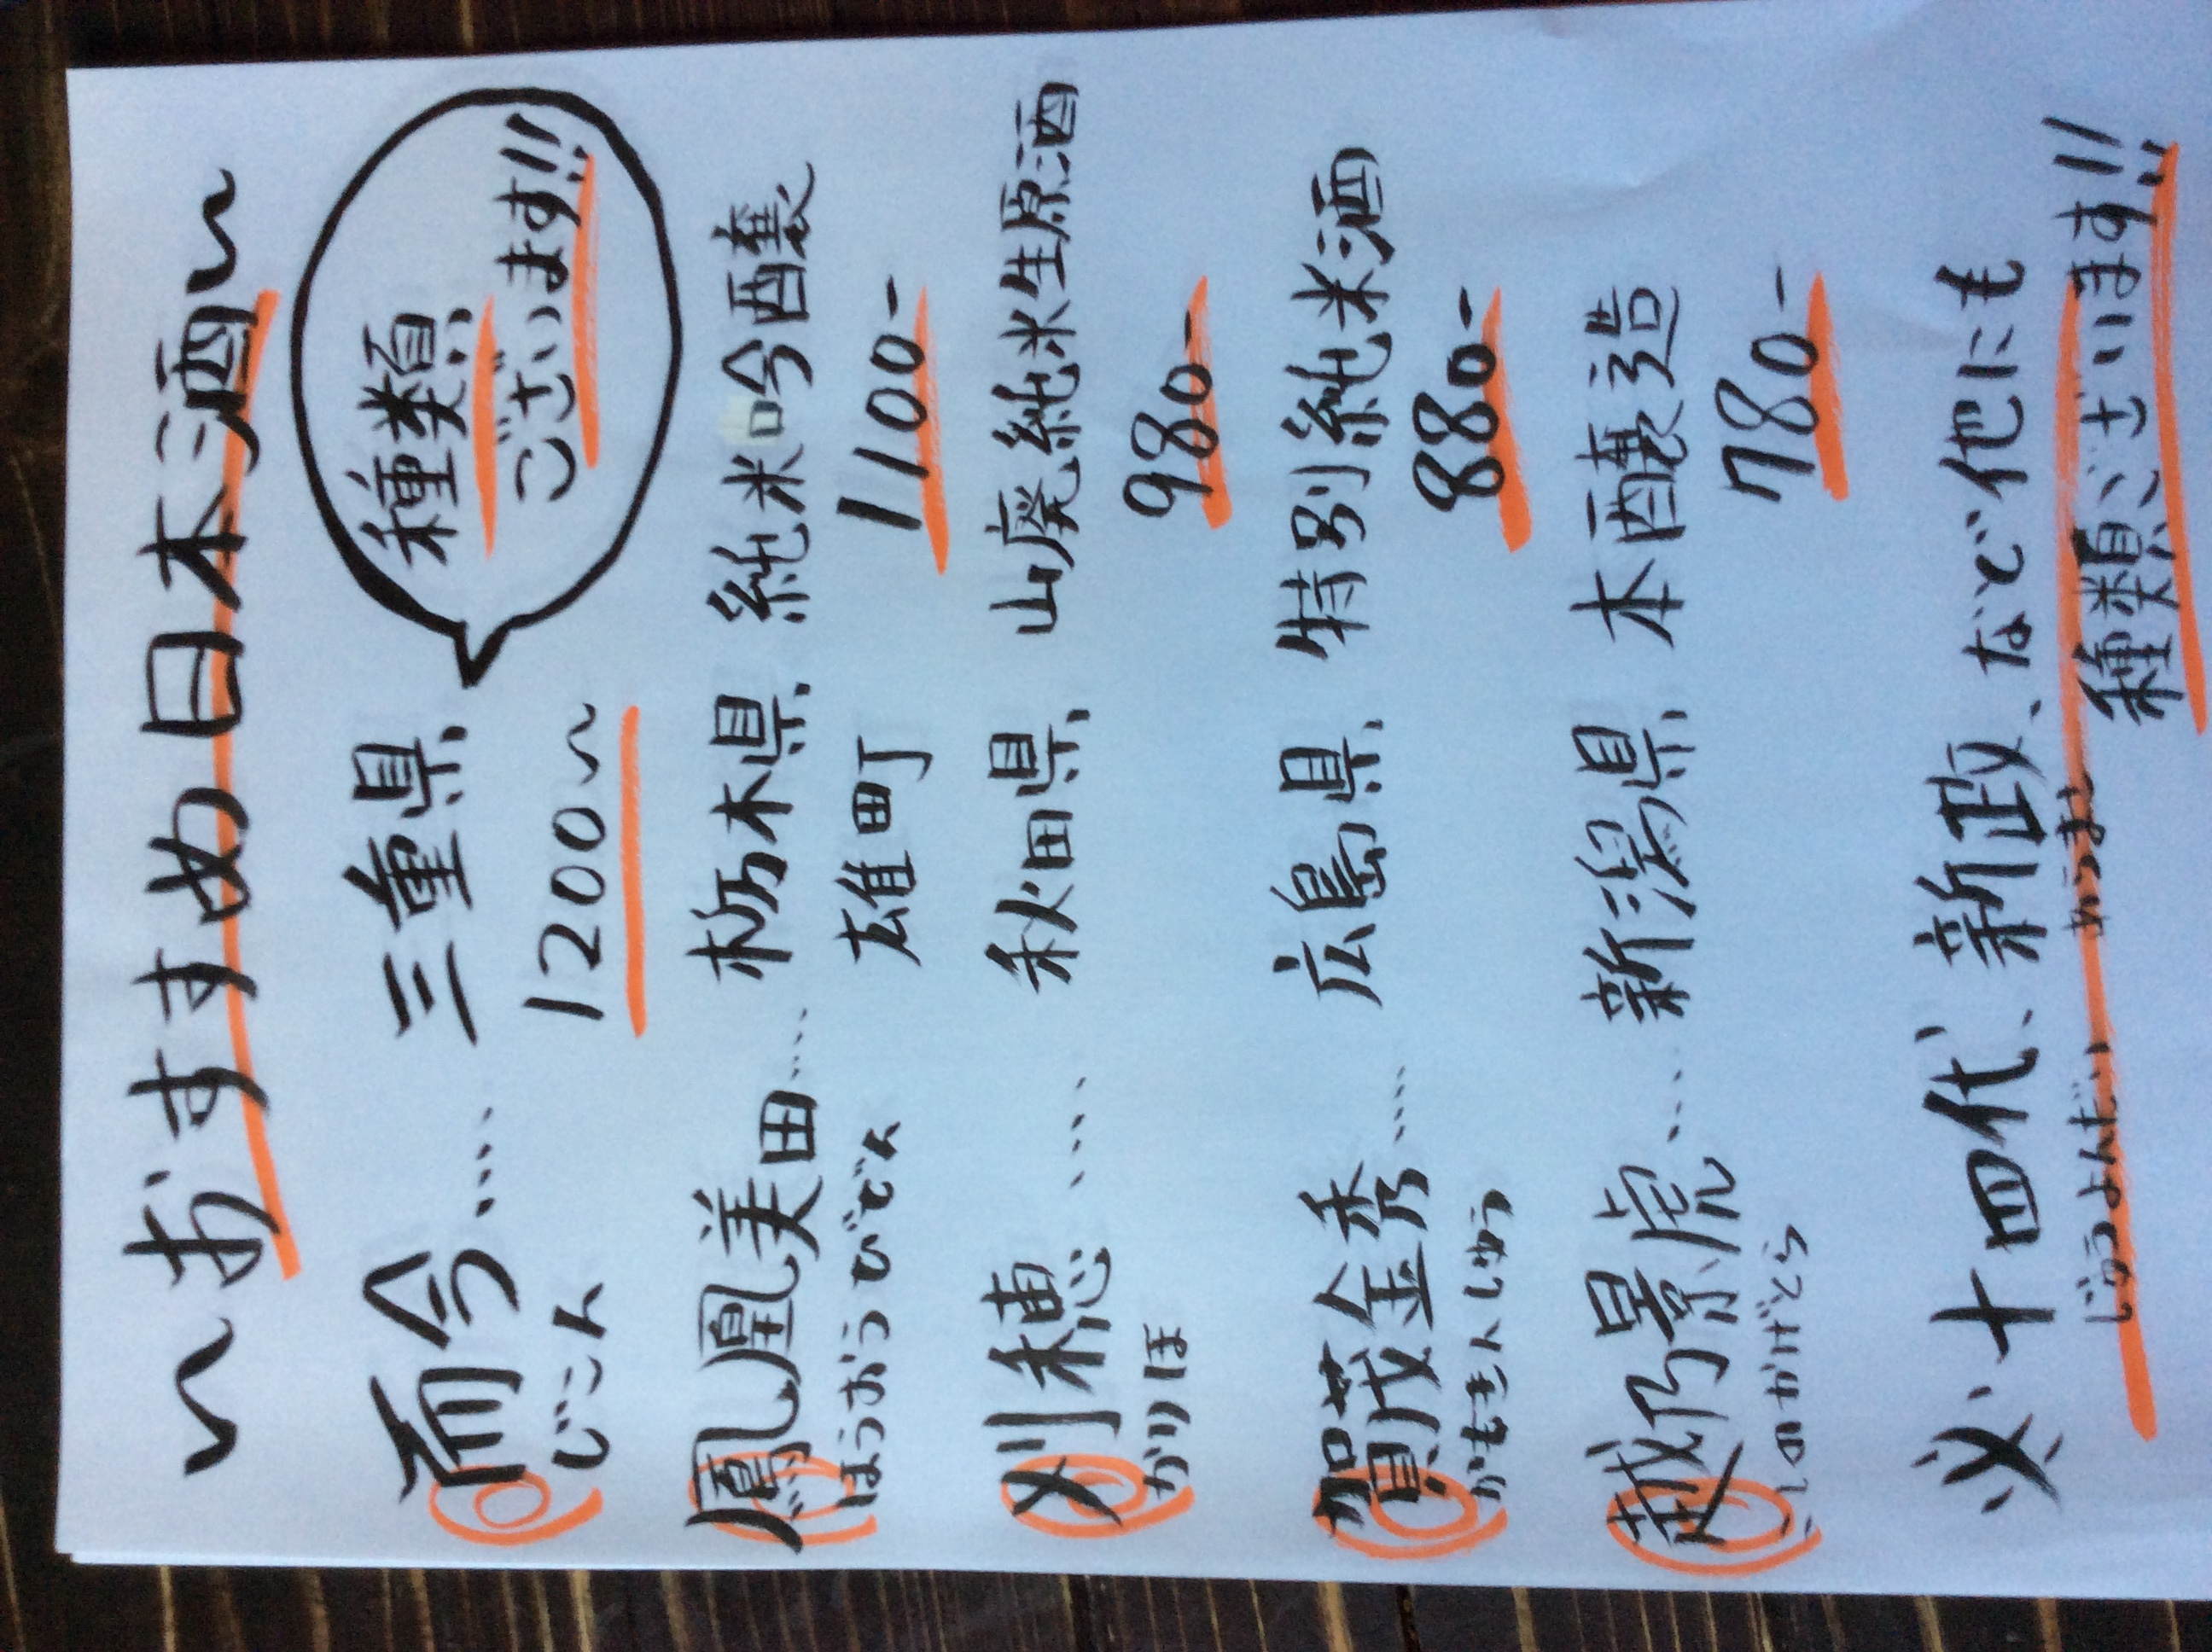 〜おすすめ日本酒〜
而今…. 三重県
じこん 1200〜
種類
ございます!!
鳳凰美田…. 栃木県 純米吟醸
ほうおうびでん 雄町 1100-
刈穂 …. 秋田県 山廃純米生原酒
かりほ 980-
賀茂金秀…. 広島県 特別純米酒
かもきんしゅう 880-
越乃景虎…. 新潟県 本醸造
こしのかげとら 780-
※十四代、新政、など他にも
じゅうよんだい あらまさ 種類ございます!!